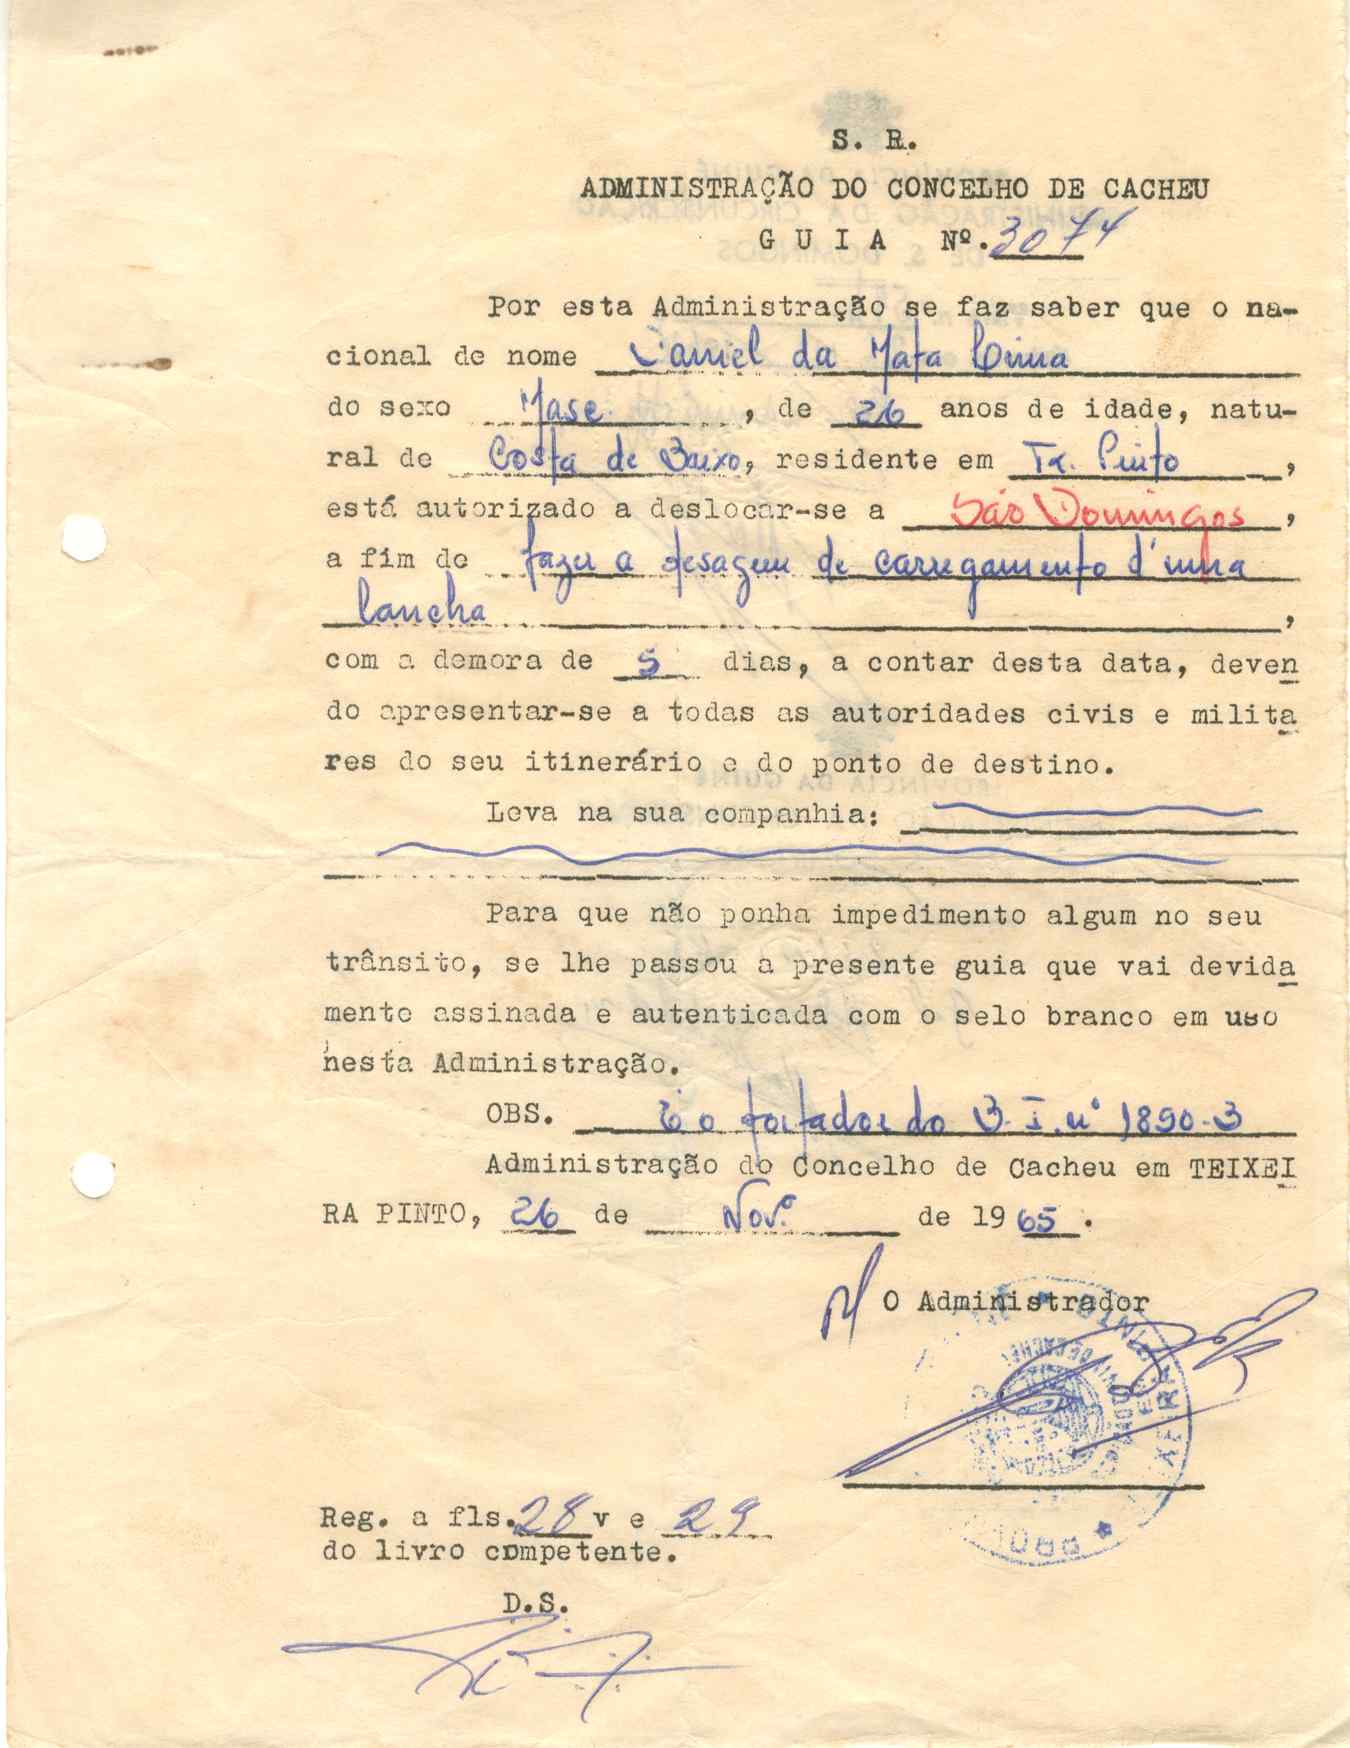 S. R.
ADMINISTRAÇÃO DO CONCELHO DE CACHEU
G U I A Nº. 3074
Por esta Administração se faz saber que o na-
cional de nome Daniel da Mata Lima
do sexo Masc. , de 26 anos de idade, natu-
ral de Costa de Baixo, residente em Tx. Pinto ,
está autorizado a deslocar-se a São Domingos ,
a fim de fazer a pesagem de carregamento d'uma
lancha ,
com a demora de 5 dias, a contar desta data, deven
do apresentar-se a todas as autoridades civis e milita
res do seu itinerário e do ponto de destino.
Leva na sua companhia:
Para que não ponha impedimento algum no seu
trânsito, se lhe passou a presente guia que vai devida
mente assinada e autenticada com o selo branco em uso
nesta Administração.
OBS. É o portador do B.I. nº 1890-B
Administração do Concelho de Cacheu em TEIXEI
RA PINTO, 26 de Novº de 1965 .
O Administrador
Reg. a fls. 28 v e 29
do livro competente.
D.S.